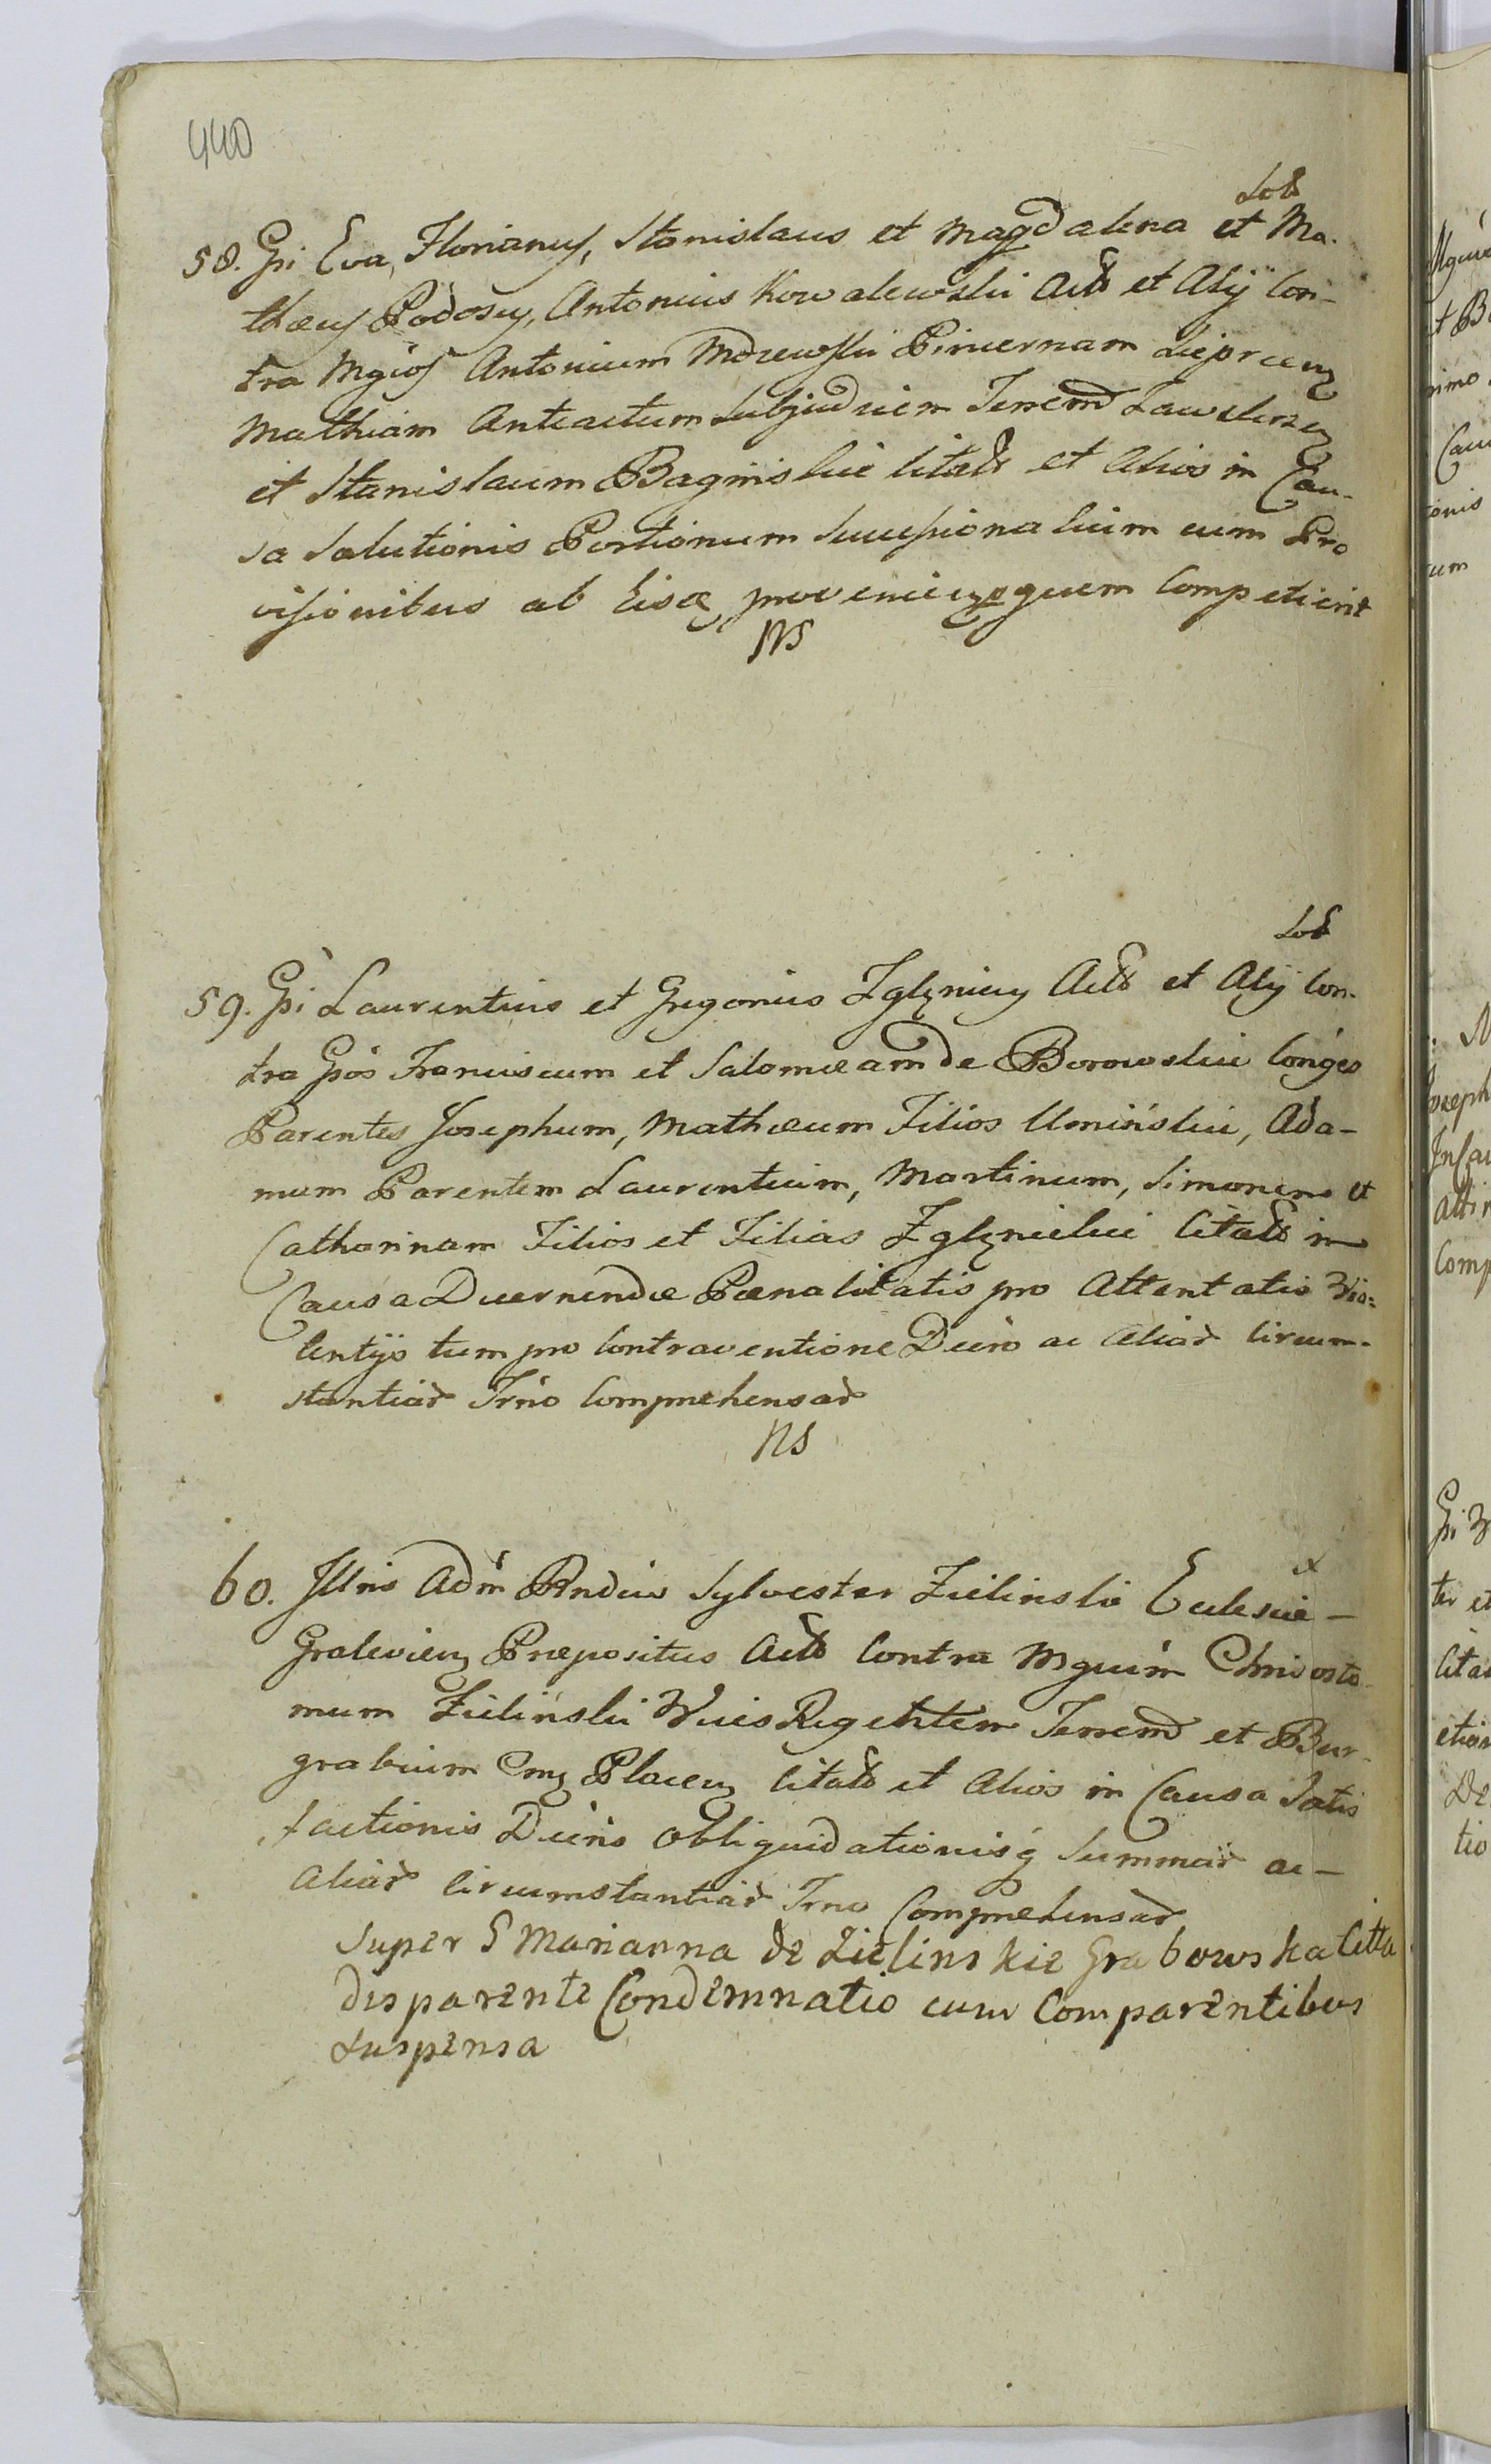 440
Sot
58. Gsi Eva, Florianus, Stanislaus et Magdalena et Ma-
thæus Podosy, Antonius Kowalewski Acts et Alij Con-
tra Mgios Antonium Mdzewski Pincernam Lieprcen
Mathiam Anteactum Subjudicem Terrem Zawskrzen
et Stanislaum Baginskie Citats et Alios in Cau-
sa Solutionis Portionum Successionalium cum Pro
visionibus ab Eisq provenien quem Competierit
NS
Sot
59. Gsi Laurentius et Gregorius Zglyniccy Acts et Alij Con-
tra Gsos Franciscum et Salomeam de Borowskie Conges
Parentes Josephum, Mathæum Filios Uminskie, Ada-
mum Parentem Laurentium, Martinum, Simonem et
Catharinam Filios et Filias Zglynickie Citats in
Causa Decernendæ Pænalitatis pro Attentatis Vio=
lentijs tum pro Contraventione Decro ac Aliad Circum-
stantiad Trno Comprehensad
NS
x
60. Illris Adm Rndus Sylvester Zielinski Ecclesiæ -
Gralevien Præpositus Acts Contra Mguim Chrisosto
mum Zielinski Vices Regentem Terrem et Bur-
grabium Cm Plocen Citats et Alios in Causa Satis
factionis Decris Obliquidationisq Summad ac -
Aliad Circumstantiad Trno Comprehensad
Super G Marianna de Zielinskie Grabowska Citta
disparente Condemnatio cum Comparentibus
suspensa